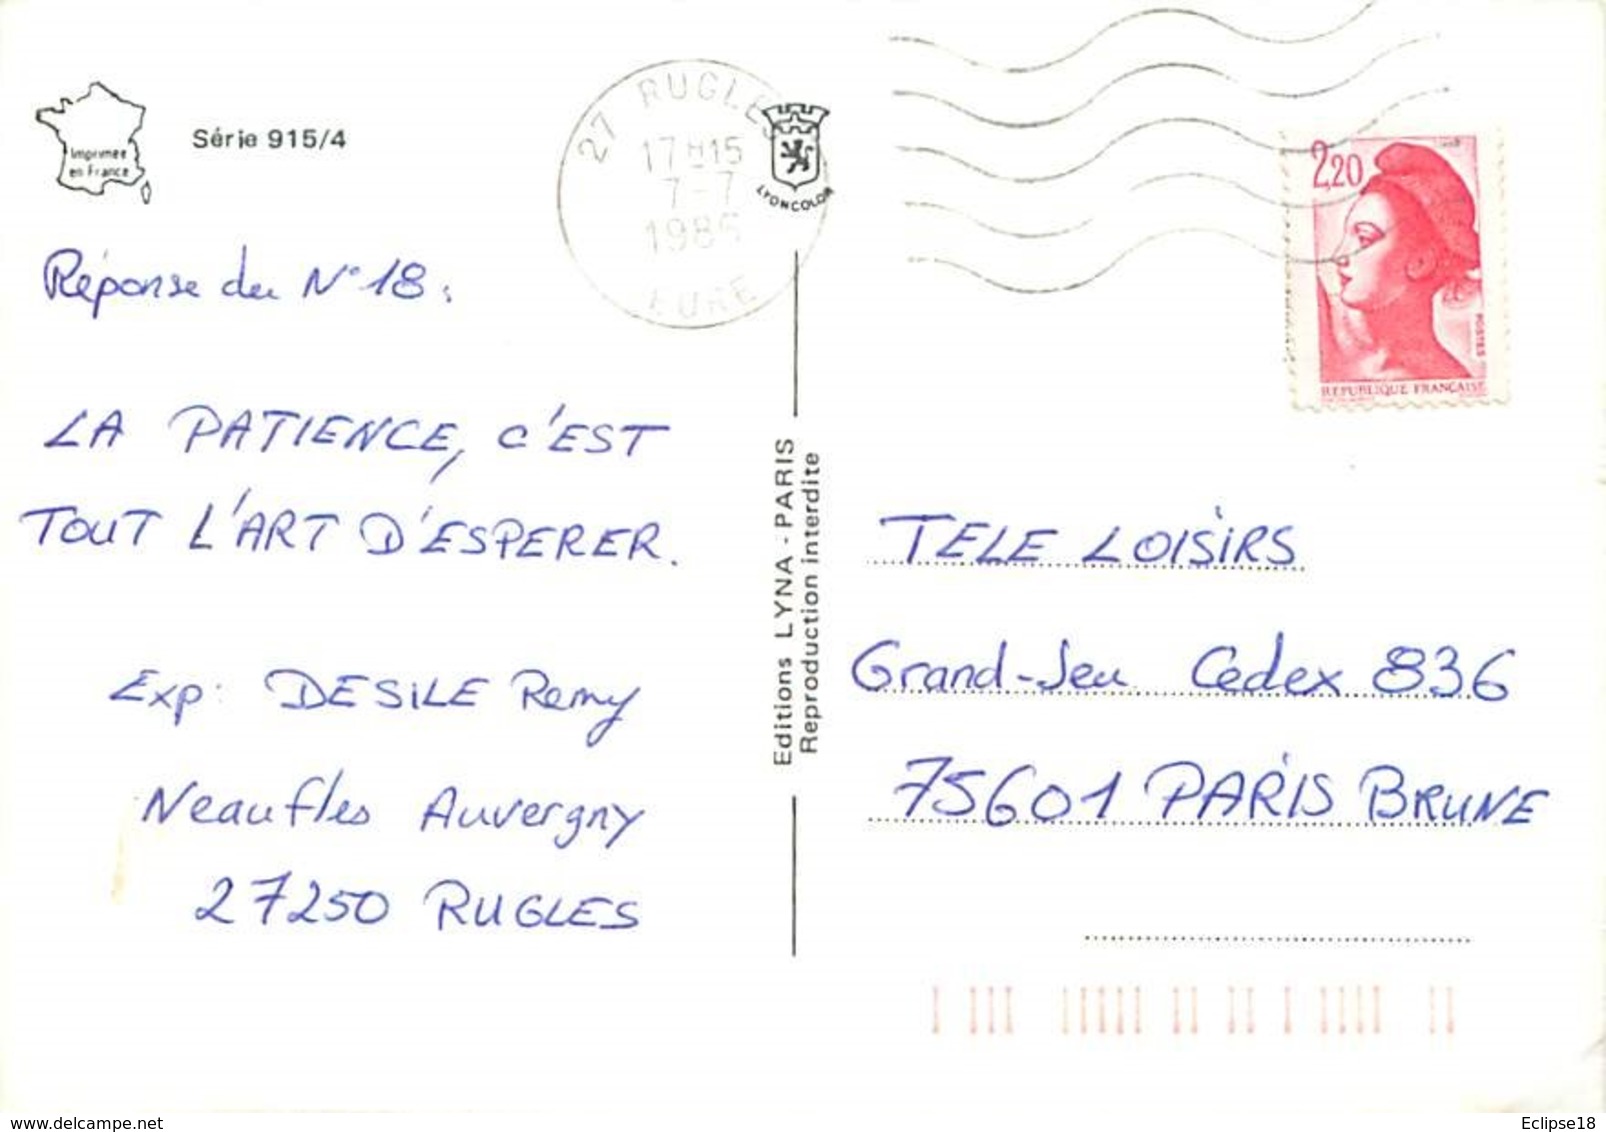 Imprimée
en France
Série 915/4
27 RUGLES
17H15
7-7
1986
EURE
LYONCOLOR
2,20
POSTES
REPUBLIQUE FRANÇAISE
Réponse du N° 18:
LA PATIENCE, C'EST
TOUT L'ART D'ESPERER.
Exp: DESILE Remy
Neaufles Auvergny
27250 RUGLES
Editions LYNA - PARIS
Reproduction interdite
TELE LOISIRS
Grand-Jeu Cedex 836
75601 PARIS BRUNE
www.delcampe.net
Eclipse18